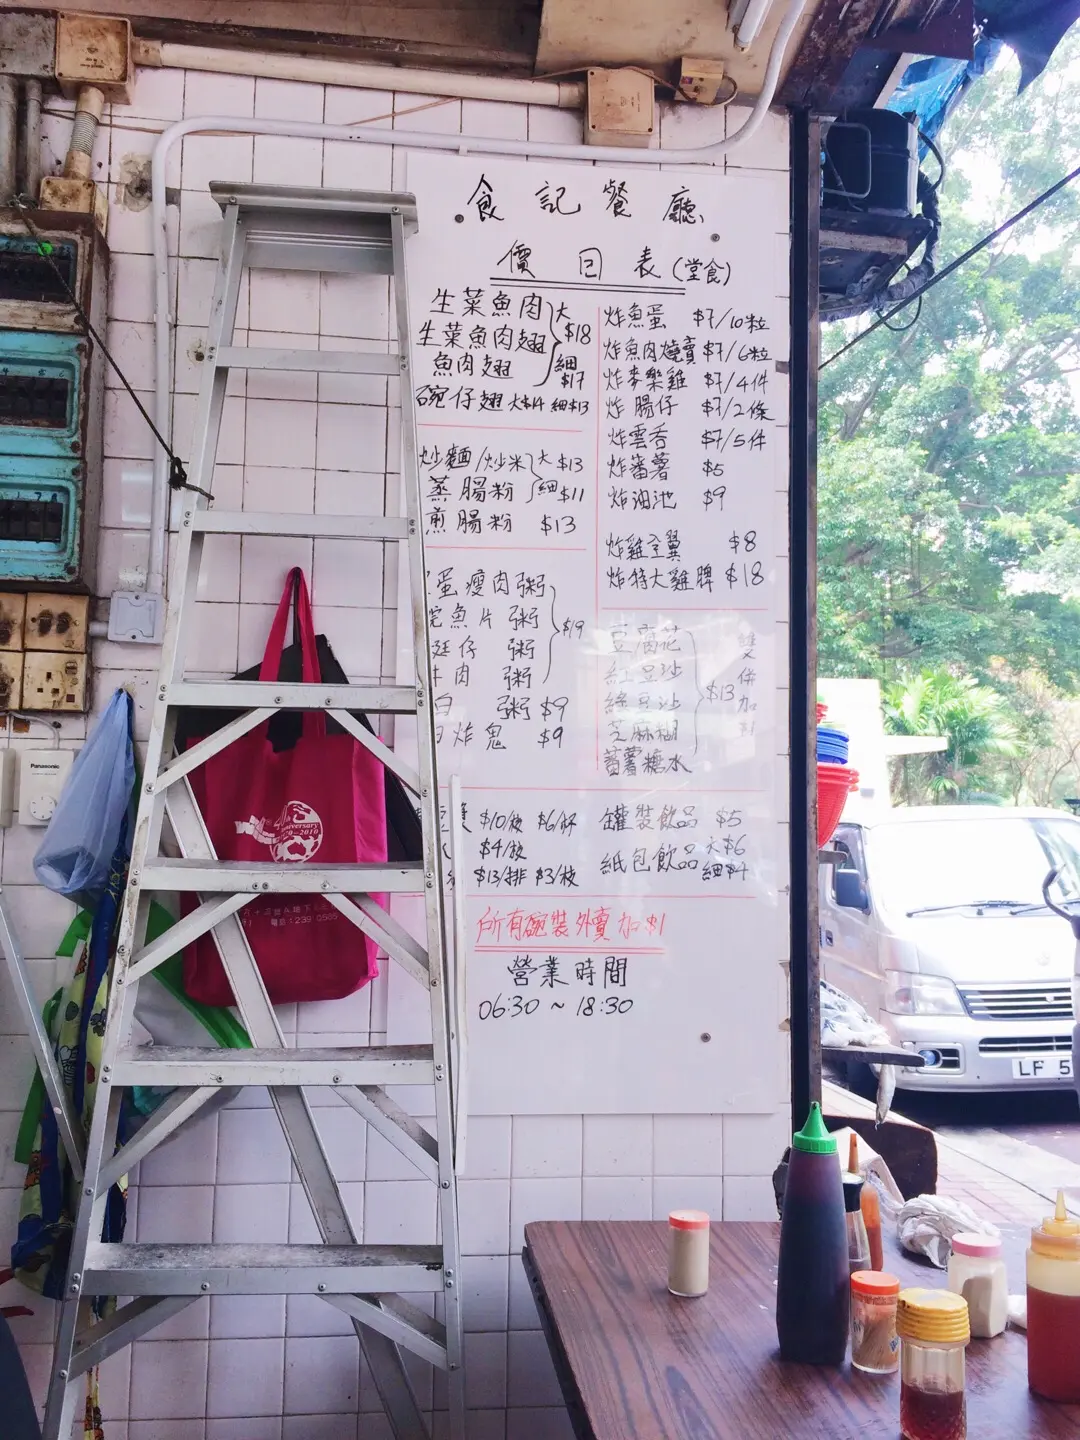 食記餐廳
價目表(堂食)
生菜魚肉
生菜魚肉翅
魚肉翅
大 $18
細 $17
碗仔翅 大$14 細$13
炒麵/炒米
蒸腸粉
大 $13
細 $11
煎腸粉 $13
蛋瘦肉粥
魚片粥
艇仔粥
牛肉粥
$19
白粥 $9
炸鬼 $9
$10/枝 $6/杯
$4/枝
$13/排 $3/枝
炸魚蛋 $7/10粒
炸魚肉燒賣 $7/6粒
炸麥樂雞 $7/4件
炸腸仔 $7/2條
炸雲吞 $7/5件
炸蕃薯 $5
炸油池 $9
炸雞全翼 $8
炸特大雞髀 $18
豆腐花
紅豆沙
綠豆沙
芝麻糊
蕃薯糖水
$13
雙併加
罐裝飲品 $5
紙包飲品 大$6 細$4
所有碗裝外賣加$1
營業時間
06:30 ~ 18:30
Panasonic
LF 5